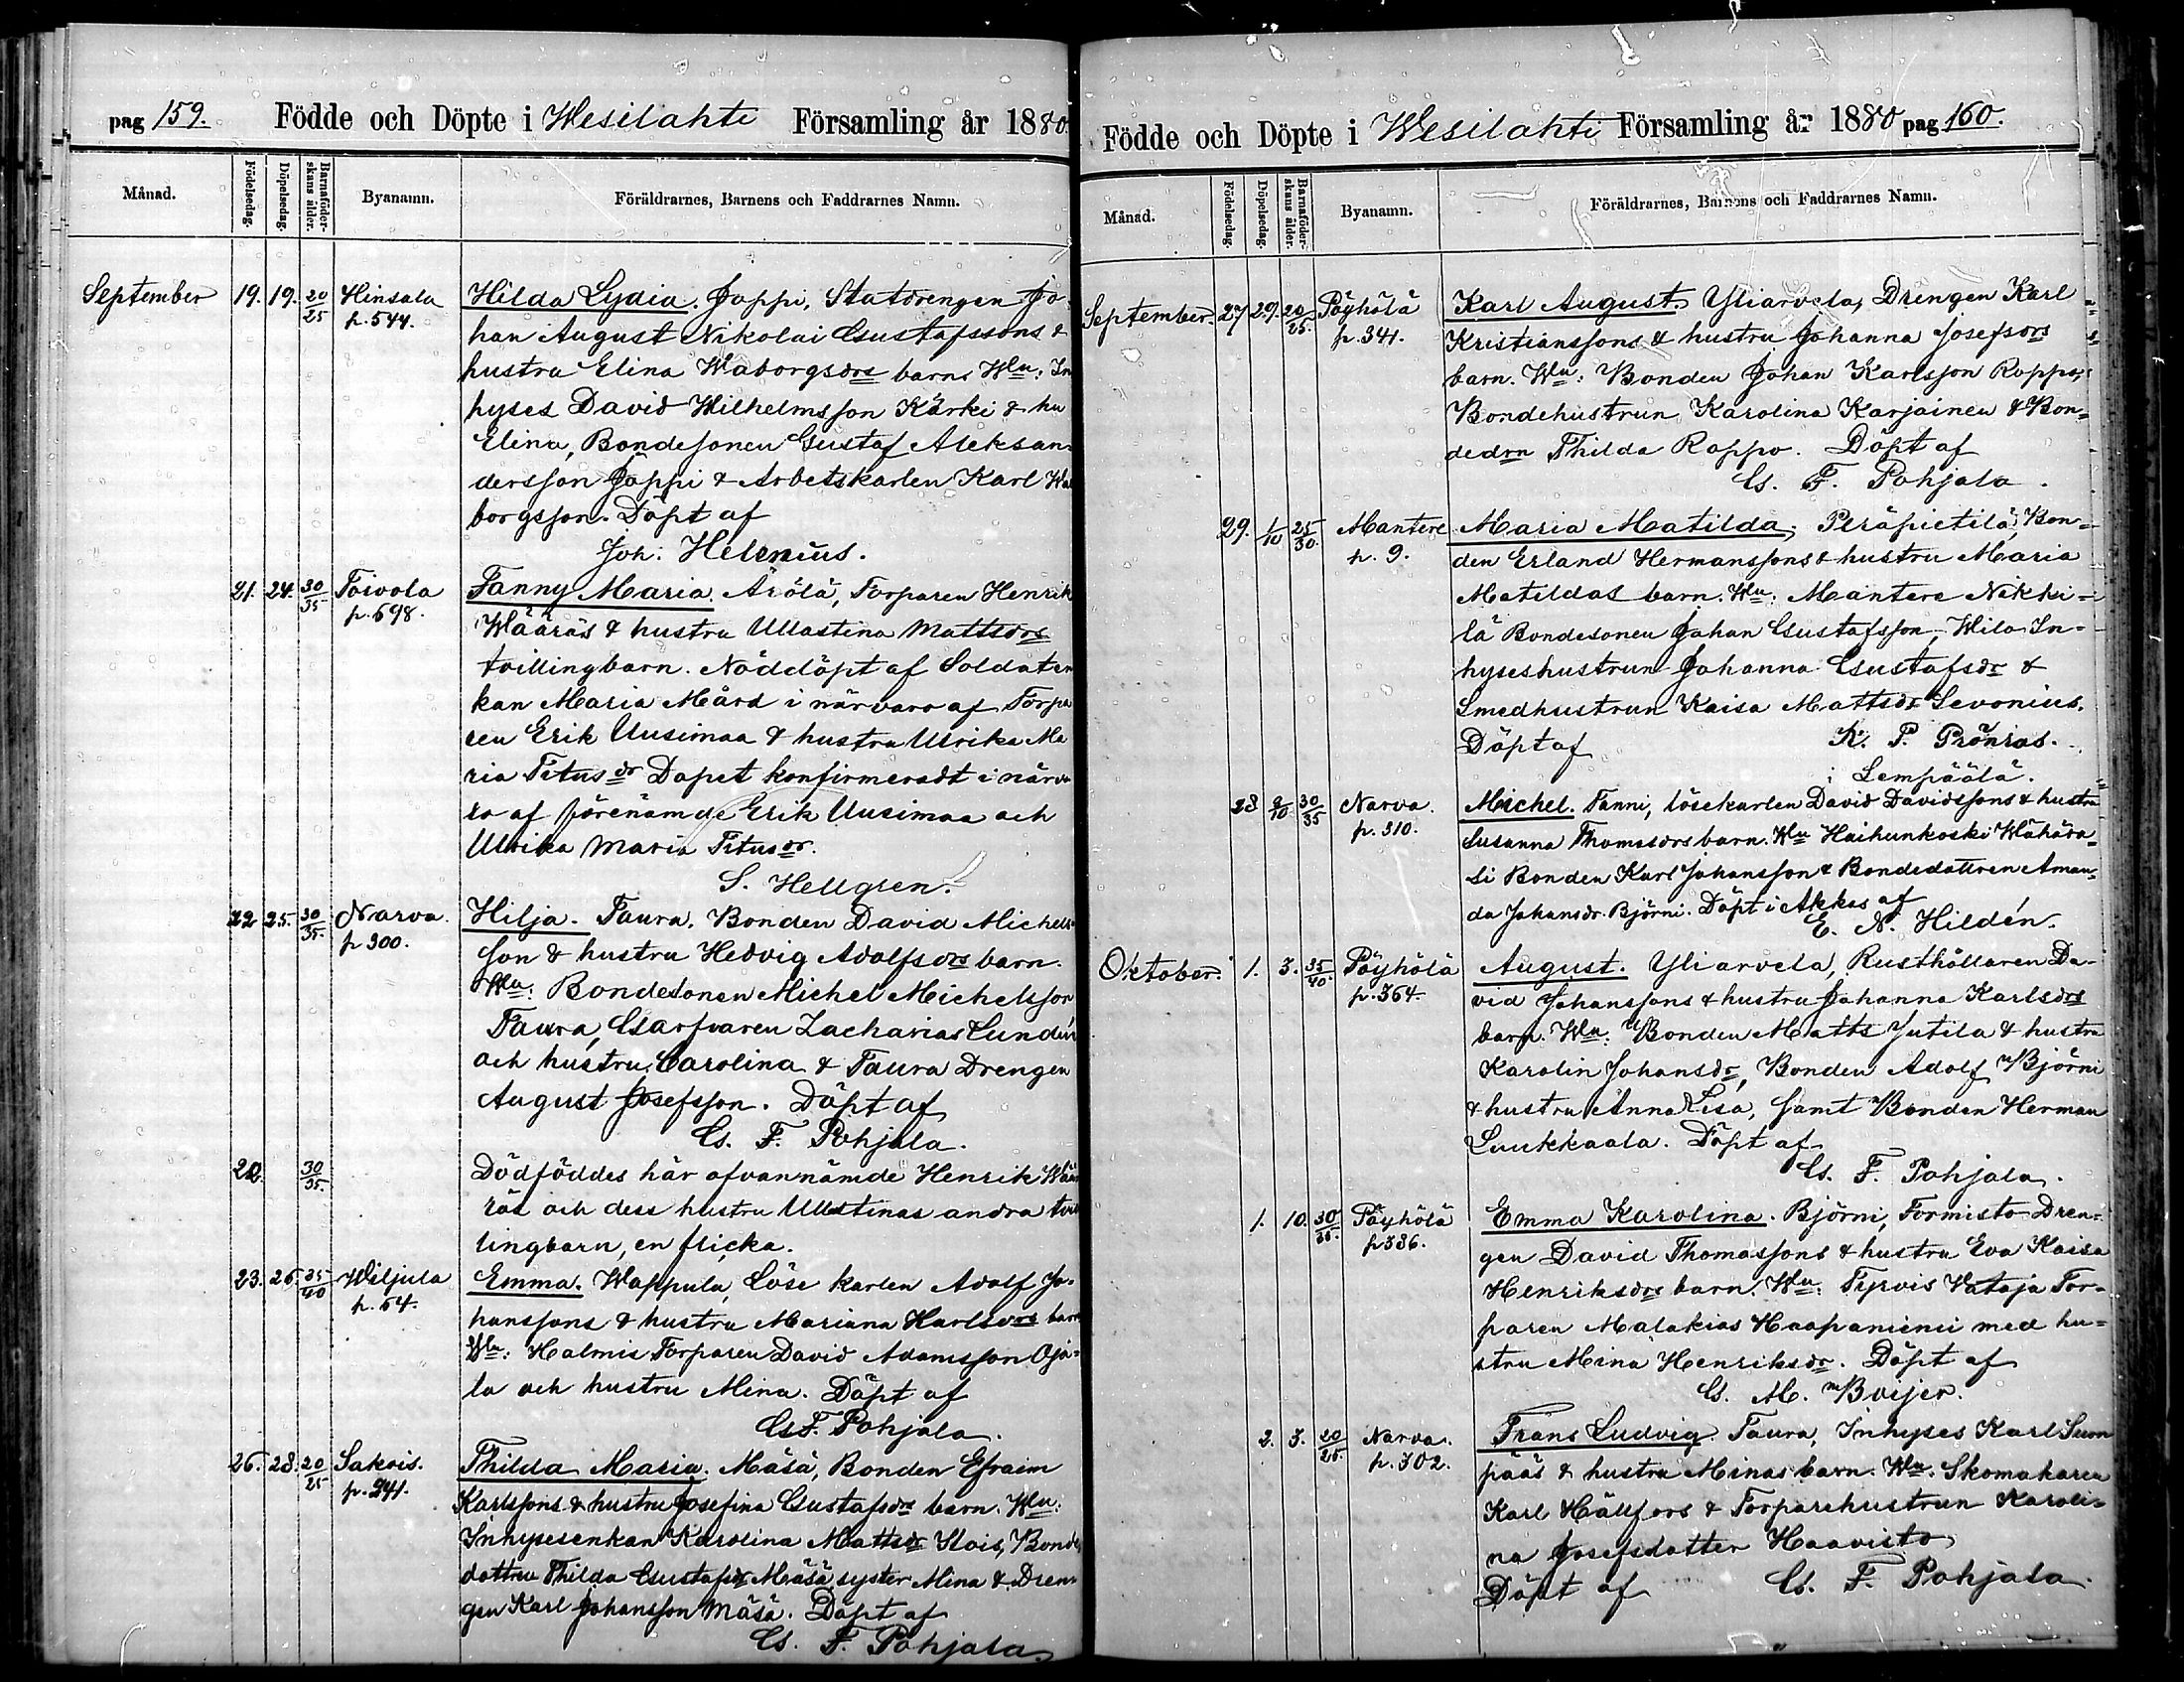 pag 159. Födde och Döpte i Wesilahti Församling år 1880.
Månad. Födelsedag. Döpelsedag. Barnaföderskans ålder. Byanamn. Föräldrarnes, Barnens och Faddrarnes Namn.
September 19. 19. 20/25 Hinsala Hilda Lydia. Joppi, Statdrengen Jo-
p. 544. han August Nikolai Gustafssons &
hustru Elina Waborgsdrs barn. Wln: In
hyses David Wilhelmsson Kärki & hu
Elina, Bondesonen Gustaf Aleksan-
dersson Joppi & Arbetskarlen Karl Wa
borgsson. Döpt af
Joh. Helenius.
21. 24. 30/35 Toivola Fanny Maria. Arölä, Torparen Henrik
p. 698. Wääräs & hustru Ullastina Mattsdrs
tvillingbarn. Nöddöpt af Soldaten
kan Maria Mård i närvaro af Torpa
ren Erik Uusimaa & hustru Ulrika Ma
ria Titusdr Dopet konfirmeradt i närva
ro af förenämde Erik Uusimaa och
Ulrika Maria Titusdr.
S. Hellgren.
22 25. 30/35. Narva. Hilja. Taura. Bonden David Michels-
p 300. son & hustru Hedvig Adolfsdrs barn.
Wln: Bondesonen Michel Michelsson
Taura, Garfvaren Zacharias Lundén
och hustru Carolina & Taura Drengen
August Josefsson. Döpt af
G. F. Pohjala.
22. 30/35. Dödföddes här ofvannämde Henrik Wää
räs och dess hustru Ullstinas andra tvil
lingbarn, en flicka.
23. 26. 35/40 Wiljula Emma. Wappula, Löse karlen Adolf Jo-
p. 64. hanssons & hustru Mariana Karlsdrs barn
Wln: Halmis Torparen David Adamsson Oja-
la och hustru Mina. Döpt af
G. F. Pohjala.
26. 28. 20/25 Sakois. Thilda Maria. Mäsä, Bonden Efraim
p. 241. Karlssons & hustru Josefina Gustafsdrs barn. Wln:
Inhysesenkan Karolina Mattsdr Hois, Bonde
dottren Thilda Gustafsdr Mäsä, syster Mina & Dren-
gen Karl Johansson Mäsä. Döpt af
G. F. Pohjala.
Födde och Döpte i Wesilahti Församling år 1880 pag 160.
Månad. Födelsedag. Döpelsedag. Barnaföderskans ålder. Byanamn. Föräldrarnes, Barnens och Faddrarnes Namn.
September. 27 29. 20/25. Pöyhölä Karl August. Yliarvela, Drengen Karl
p. 341. Kristianssons & hustru Johanna Josefsdrs
barn. Wln: Bonden Johan Karlsson Roppo,
Bondehustrun Karolina Karjainen & Bon-
dedrn Thilda Roppo. Döpt af
G. F. Pohjala.
29. 1/10 25/30. Mantere Maria Matilda. Peräpietilä, Bon-
p. 9. den Erland Hermanssons & hustru Maria
Matildas barn. Wln: Mantere Nikki-
lä Bondesonen Johan Gustafsson, Wilo In-
hyseshustrun Johanna Gustafsdr &
Smedhustrun Kaisa Mattsdr Sevonius.
Döpt af K. P. Grönroos.
i Lempäälä.
28 9/10 30/35 Narva. Michel. Tanni, lösekarlen David Davidssons & hustru
p. 310. Susanna Thomasdrs barn. Wln Haihunkoski
si Bonden Karl Johansson & Bondedottren Aman-
da Johansdr. Björni. Döpt i Akkas af
E. N. Hildén.
Oktober. 1. 3. 35/40. Pöyhölä August. Yliarvela, Rusthållaren Da-
p. 364. vid Johanssons & hustru Johanna Karlsdrs
barn. Wln: Bonden Matts Jutila & hustru
Karolin Johansdr, Bonden Adolf Björni
& hustru Anna Lisa, samt Bonden Herman
Luukkaala. Döpt af
G. F. Pohjala.
1. 10. 30/35. Pöyhölä Emma Karolina. Björni, Tormisto Dren-
p 336. gen David Thomassons & hustru Eva Kaisa
Henriksdrs barn. Wln: Tyrvis Wataja Tor-
paren Malakias Haapaniemi med hu-
stru Mina Henriksdr. Döpt af
G. M. Boijer.
2. 3. 20/25. Narva. Frans Ludvig. Taura, Inhyses Karl Suon
p. 302. pääs & hustru Minas barn. Wln. Skomakaren
Karl Hällfors & Torparehustrun Karoli-
na Josefsdotter Haavisto
Döpt af G. F. Pohjala.